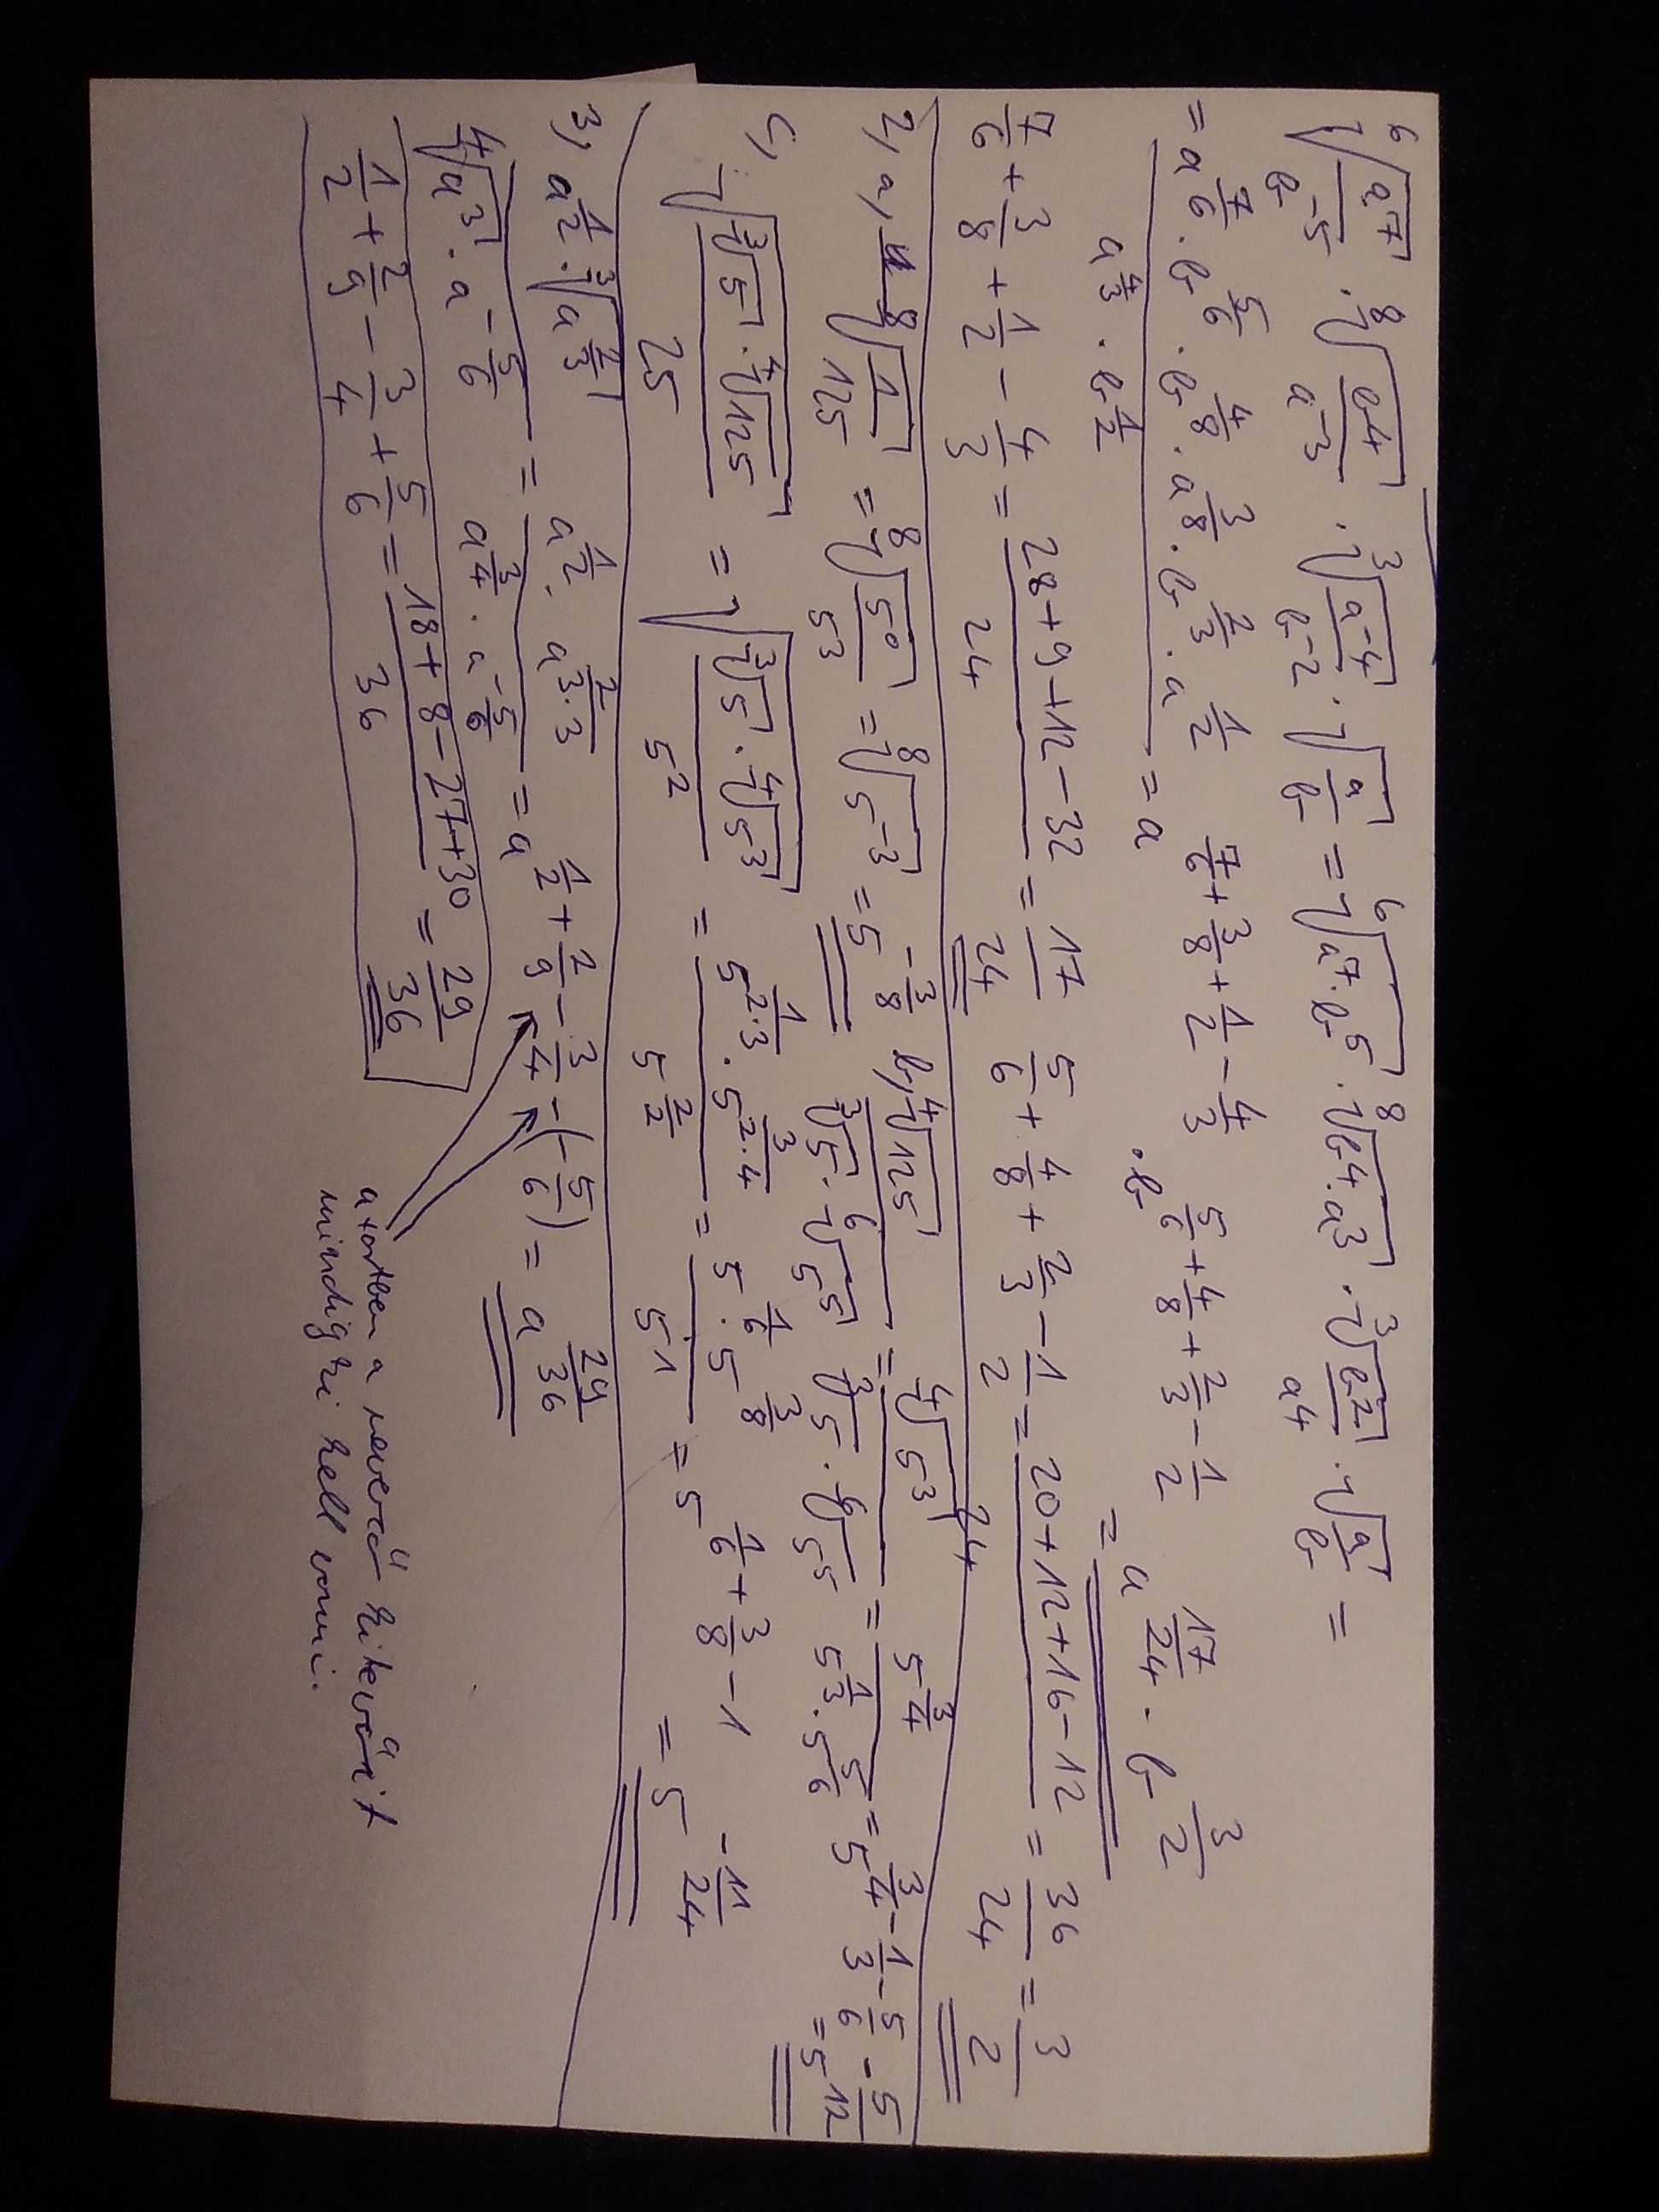 ⁶√(a⁷/b⁻⁵) · ⁸√(b⁴/a⁻³) · ³√(a⁻⁴/b⁻²) · √(a/b) = ⁶√(a⁷·b⁵) · ⁸√(b⁴·a³) · ³√(b²/a⁴) · √(a/b) =
= (a^(7/6) · b^(5/6) · b^(4/8) · a^(3/8) · b^(2/3) · a^(1/2)) / (a^(4/3) · b^(1/2)) = a^(7/6+3/8+1/2−4/3) · b^(5/6+4/8+2/3−1/2) = a^(17/24) · b^(3/2)
7/6 + 3/8 + 1/2 − 4/3 = (28+9+12−32)/24 = 17/24 5/6 + 4/8 + 2/3 − 1/2 = (20+12+16−12)/24 = 36/24 = 3/2
2, a, ⁸√(1/125) = ⁸√(5⁰/5³) = ⁸√(5⁻³) = 5^(−3/8) b, ⁴√125 / (³√5 · ⁶√5⁵) = ⁴√5³ / (³√5 · ⁶√5⁵) = 5^(3/4) / (5^(1/3) · 5^(5/6)) = 5^(3/4−1/3−5/6) = 5^(−5/12)
c, √((³√5 · ⁴√125)/25) = √((³√5 · ⁴√5³)/5²) = (5^(1/(2·3)) · 5^(3/(2·4))) / 5^(2/2) = (5^(1/6) · 5^(3/8)) / 5¹ = 5^(1/6+3/8−1) = 5^(−11/24)
3, (a^(1/2) · ³√(a^(2/3))) / (⁴√a³ · a^(−5/6)) = (a^(1/2) · a^(2/(3·3))) / (a^(3/4) · a^(−5/6)) = a^(1/2+2/9−3/4−(−5/6)) = a^(29/36)
1/2 + 2/9 − 3/4 + 5/6 = (18+8−27+30)/36 = 29/36
a törtben a nevező kitevőit
mindig ki kell vonni.